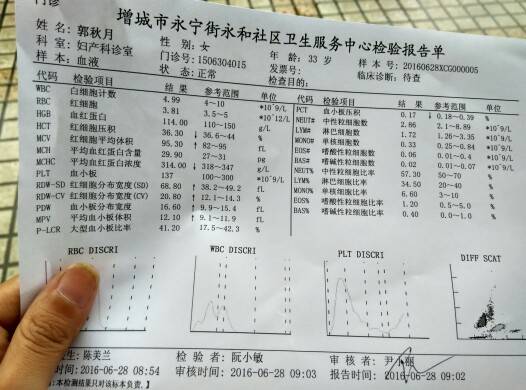 门诊
增城市永宁街永和社区卫生服务中心检验报告单
姓 名：郭秋月 性 别：女 年 龄：33 岁 样 本 号：20160628XCG000005
科 室：妇产科诊室 门诊号：1506304015 发票号： 临床诊断：待查
样 本：血液 状 态：正常 检查目的：
代码 检验项目 结 果 参考范围 单位 代码 检验项目 结 果 参考范围 单位
WBC 白细胞计数 4.99 4～10 *10^9/L PCT 血小板压积 0.17 ↓ 0.18～0.39 %
RBC 红细胞 3.81 3.5～5 *10^12/L NEUT# 中性粒细胞数 2.86 2.1～8.89 *10^9/L
HGB 血红蛋白 114.00 110～150 g/L LYM# 淋巴细胞数 1.72 1.26～3.35 *10^9/L
HCT 红细胞压积 36.30 ↓ 36.6～44 % MONO# 单核细胞数 0.33 0.25～0.84 *10^9/L
MCV 红细胞平均体积 95.30 ↑ 82～95 fL EOS# 嗜酸性粒细胞数 0.06 0.01～0.4 *10^9/L
MCH 平均血红蛋白含量 29.90 27～31 pg BAS# 嗜碱性粒细胞数 0.02 0.01～0.07 *10^9/L
MCHC 平均血红蛋白浓度 314.00 ↓ 318～347 g/L NEUT% 中性粒细胞比率 57.30 50～70 %
PLT 血小板 137 100～300 *10^9/L LYM% 淋巴细胞比率 34.50 20～40 %
RDW-SD 红细胞分布宽度(SD) 68.80 ↑ 38.2～49.2 fL MONO% 单核细胞比率 6.60 3～10 %
RDW-CV 红细胞分布宽度(CV) 20.80 ↑ 12.1～14.3 % EOS% 嗜酸性粒细胞比率 1.20 0.5～5.0 %
PDW 血小板分布宽度 16.60 ↑ 9.9～15.4 fL BAS% 嗜碱性粒细胞比率 0.40 0.0～1.0 %
MPV 平均血小板体积 12.10 ↑ 9.1～11.9 fL
P-LCR 大型血小板比率 41.20 17.5～42.3 %
RBC DISCRI WBC DISCRI PLT DISCRI DIFF SCAT
生：陈美兰 检 验 者：阮小敏 审 核 者：
时间：2016-06-28 08:54 审核时间：2016-06-28 09:03 报告时间：2016-06-28 09:02
：本检测结果只对该标本负责。